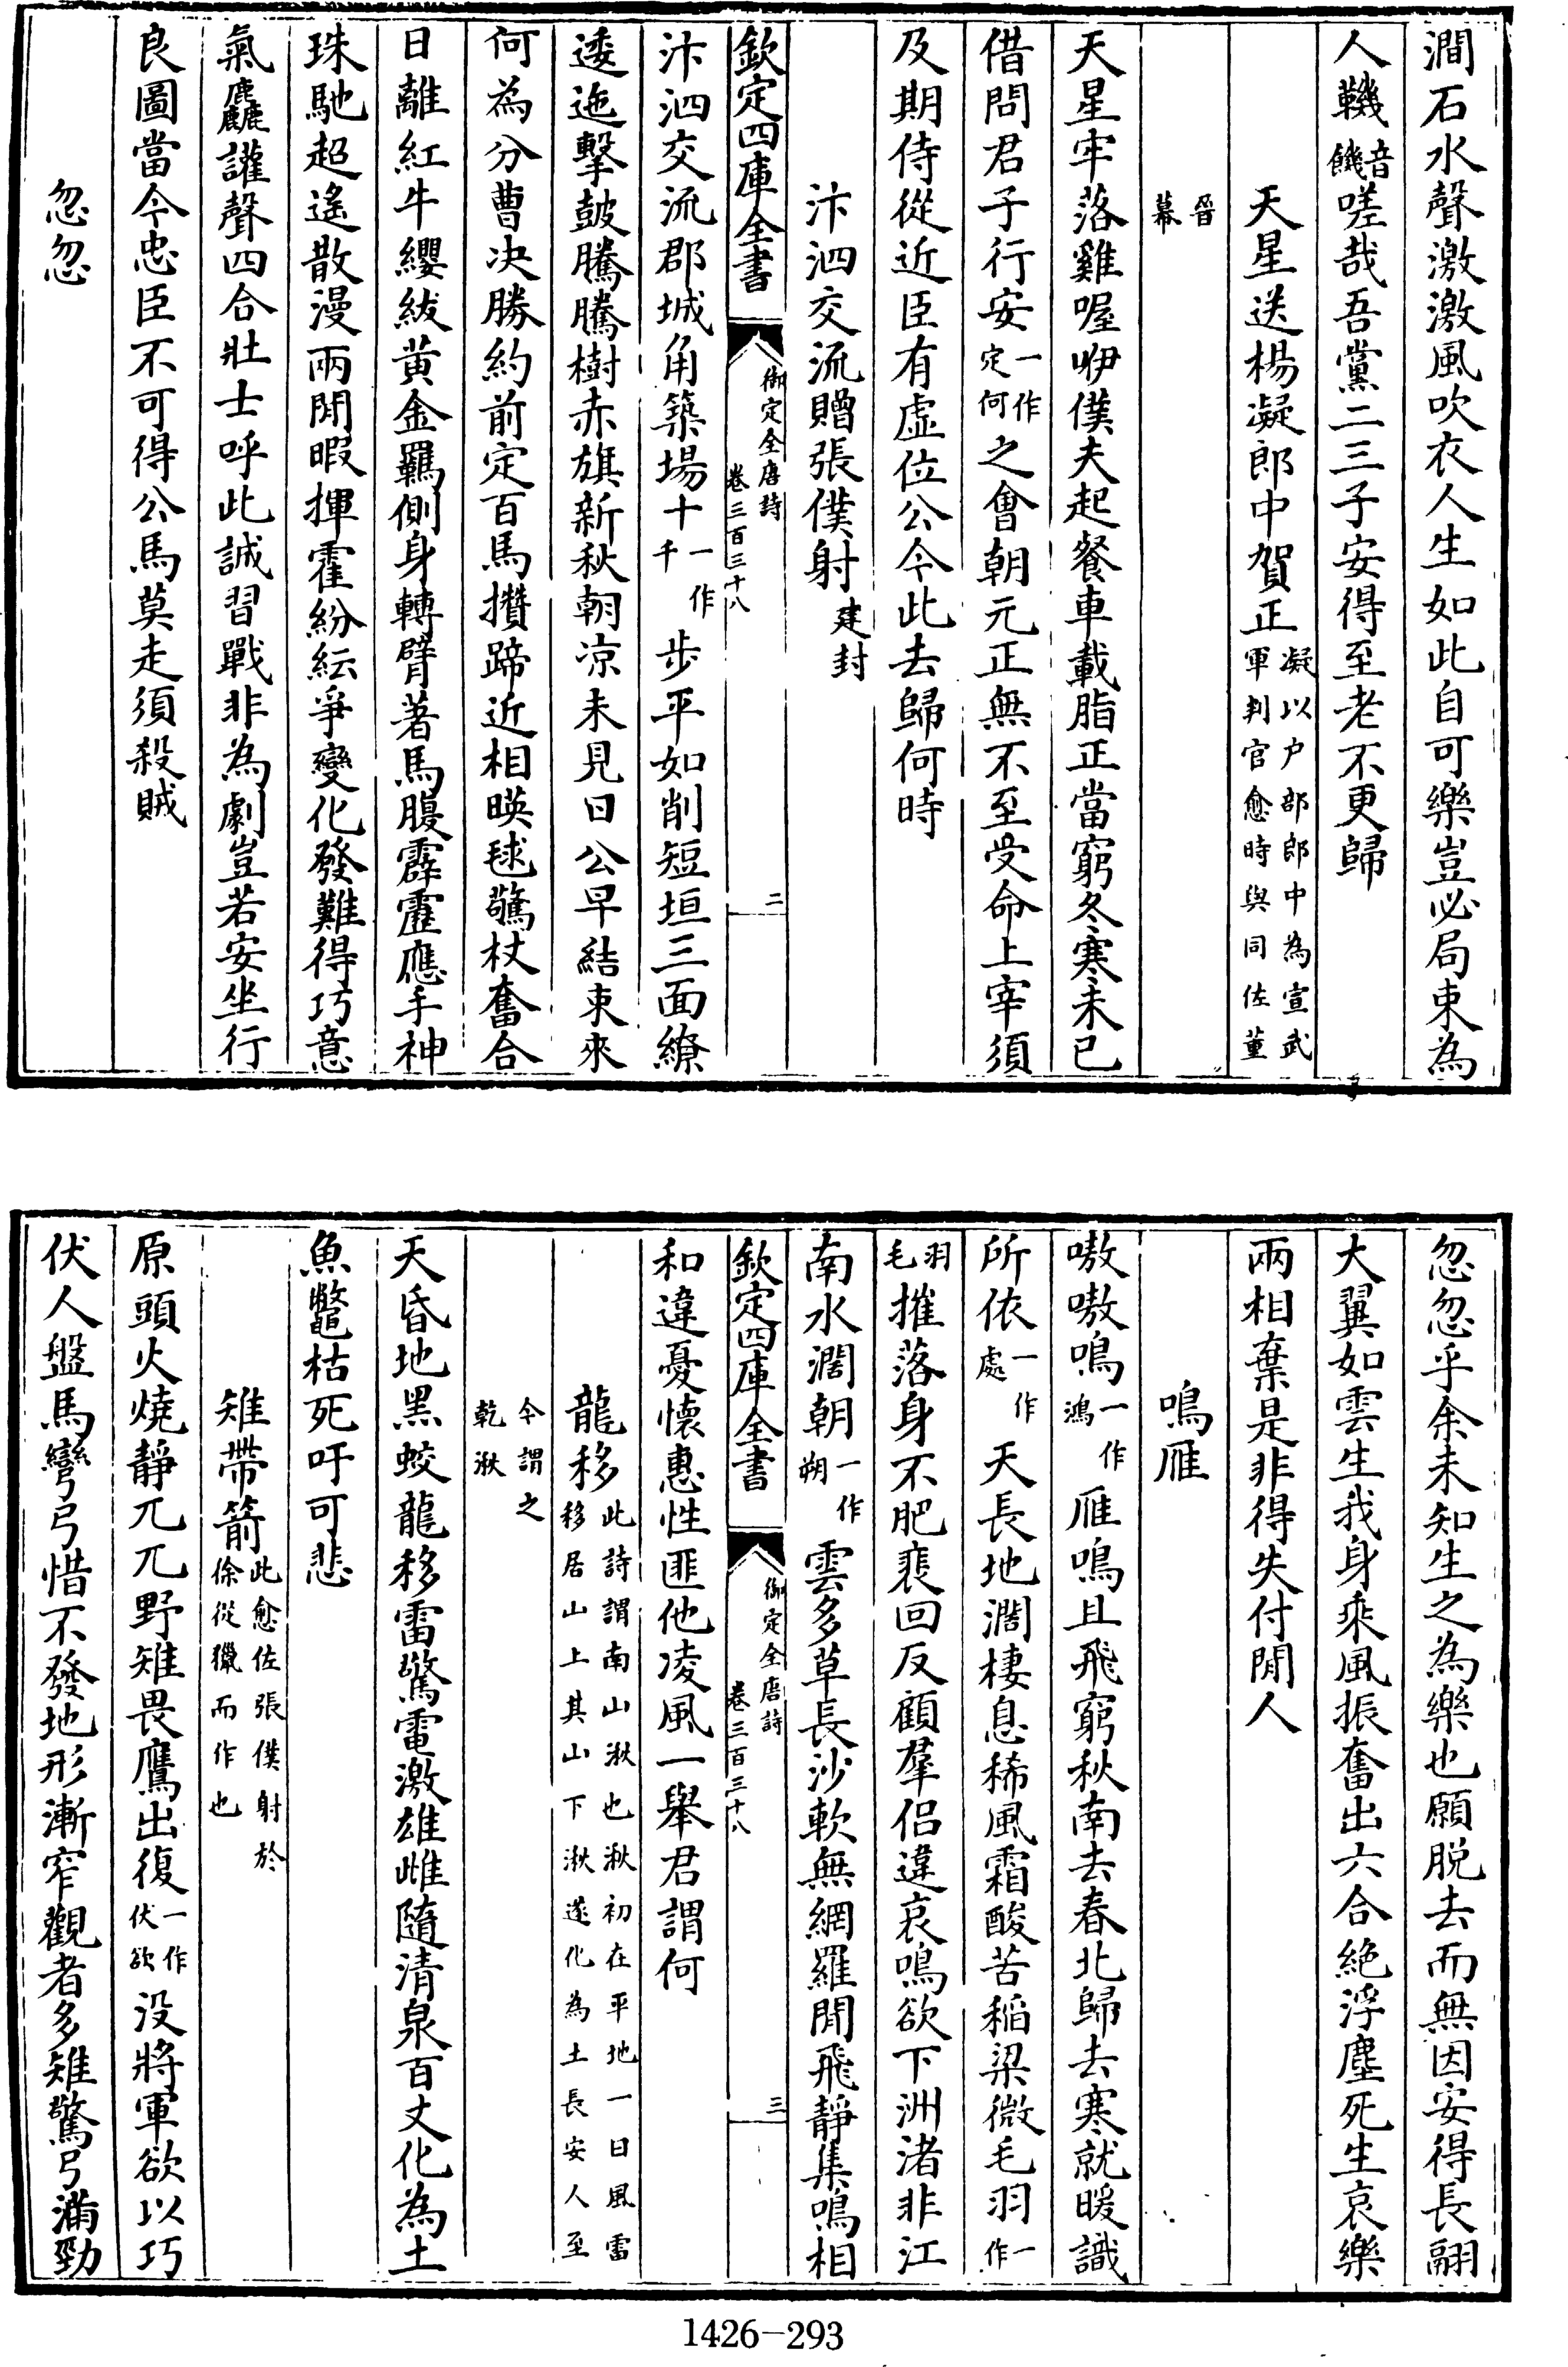 澗石水聲激激風吹衣人生如此自可樂豈必局束為
人鞿音饑嗟哉吾黨二三子安得至老不更歸
天星送楊凝郎中賀正凝以户部郎中為宣武軍判官愈時與同佐董
晉幕
天星牢落雞喔咿僕夫起餐車載脂正當窮冬寒未已
借問君子行安一作定何之會朝元正無不至受命上宰須
及期侍從近臣有虛位公今此去歸何時
汴泗交流贈張僕射建封
欽定四庫全書
御定全唐詩
卷三百三十八
二
汴泗交流郡城角築場十一作千步平如削短垣三面繚
逶迤擊鼓騰騰樹赤旗新秋朝凉未見日公早結束來
何為分曹决勝約前定百馬攢蹄近相暎毬驚杖奮合
日離紅牛纓紱黃金羈側身轉臂著馬腹霹靂應手神
珠馳超遙散漫兩閒暇揮霍紛紜爭變化發難得巧意
氣麤讙聲四合壯士呼此誠習戰非為劇豈若安坐行
良圖當今忠臣不可得公馬莫走須殺賊
忽忽
忽忽乎余未知生之為樂也願脱去而無因安得長翮
大翼如雲生我身乘風振奮出六合絶浮塵死生哀樂
兩相棄是非得失付閒人
鳴雁
嗷嗷鳴一作鴻雁鳴且飛窮秋南去春北歸去寒就暖識
所依一作處天長地濶棲息稀風霜酸苦稻粱微毛羽一作
羽毛摧落身不肥裵回反顧羣侶違哀鳴欲下洲渚非江
南水濶朝一作朔雲多草長沙軟無網羅閒飛靜集鳴相
欽定四庫全書
御定全唐詩
卷三百三十八
三
和違憂懷惠性匪他凌風一舉君謂何
龍移此詩謂南山湫也湫初在平地一日風雷移居山上其山下湫遂化為土長安人至
今謂之乾湫
天昏地黑蛟龍移雷驚電激雄雌隨清泉百丈化為土
魚鼈枯死吁可悲
雉帶箭此愈佐張僕射於徐從獵而作也
原頭火燒靜兀兀野雉畏鷹出復一作伏欲没將軍欲以巧
伏人盤馬彎弓惜不發地形漸窄觀者多雉驚弓滿勁
1426-293